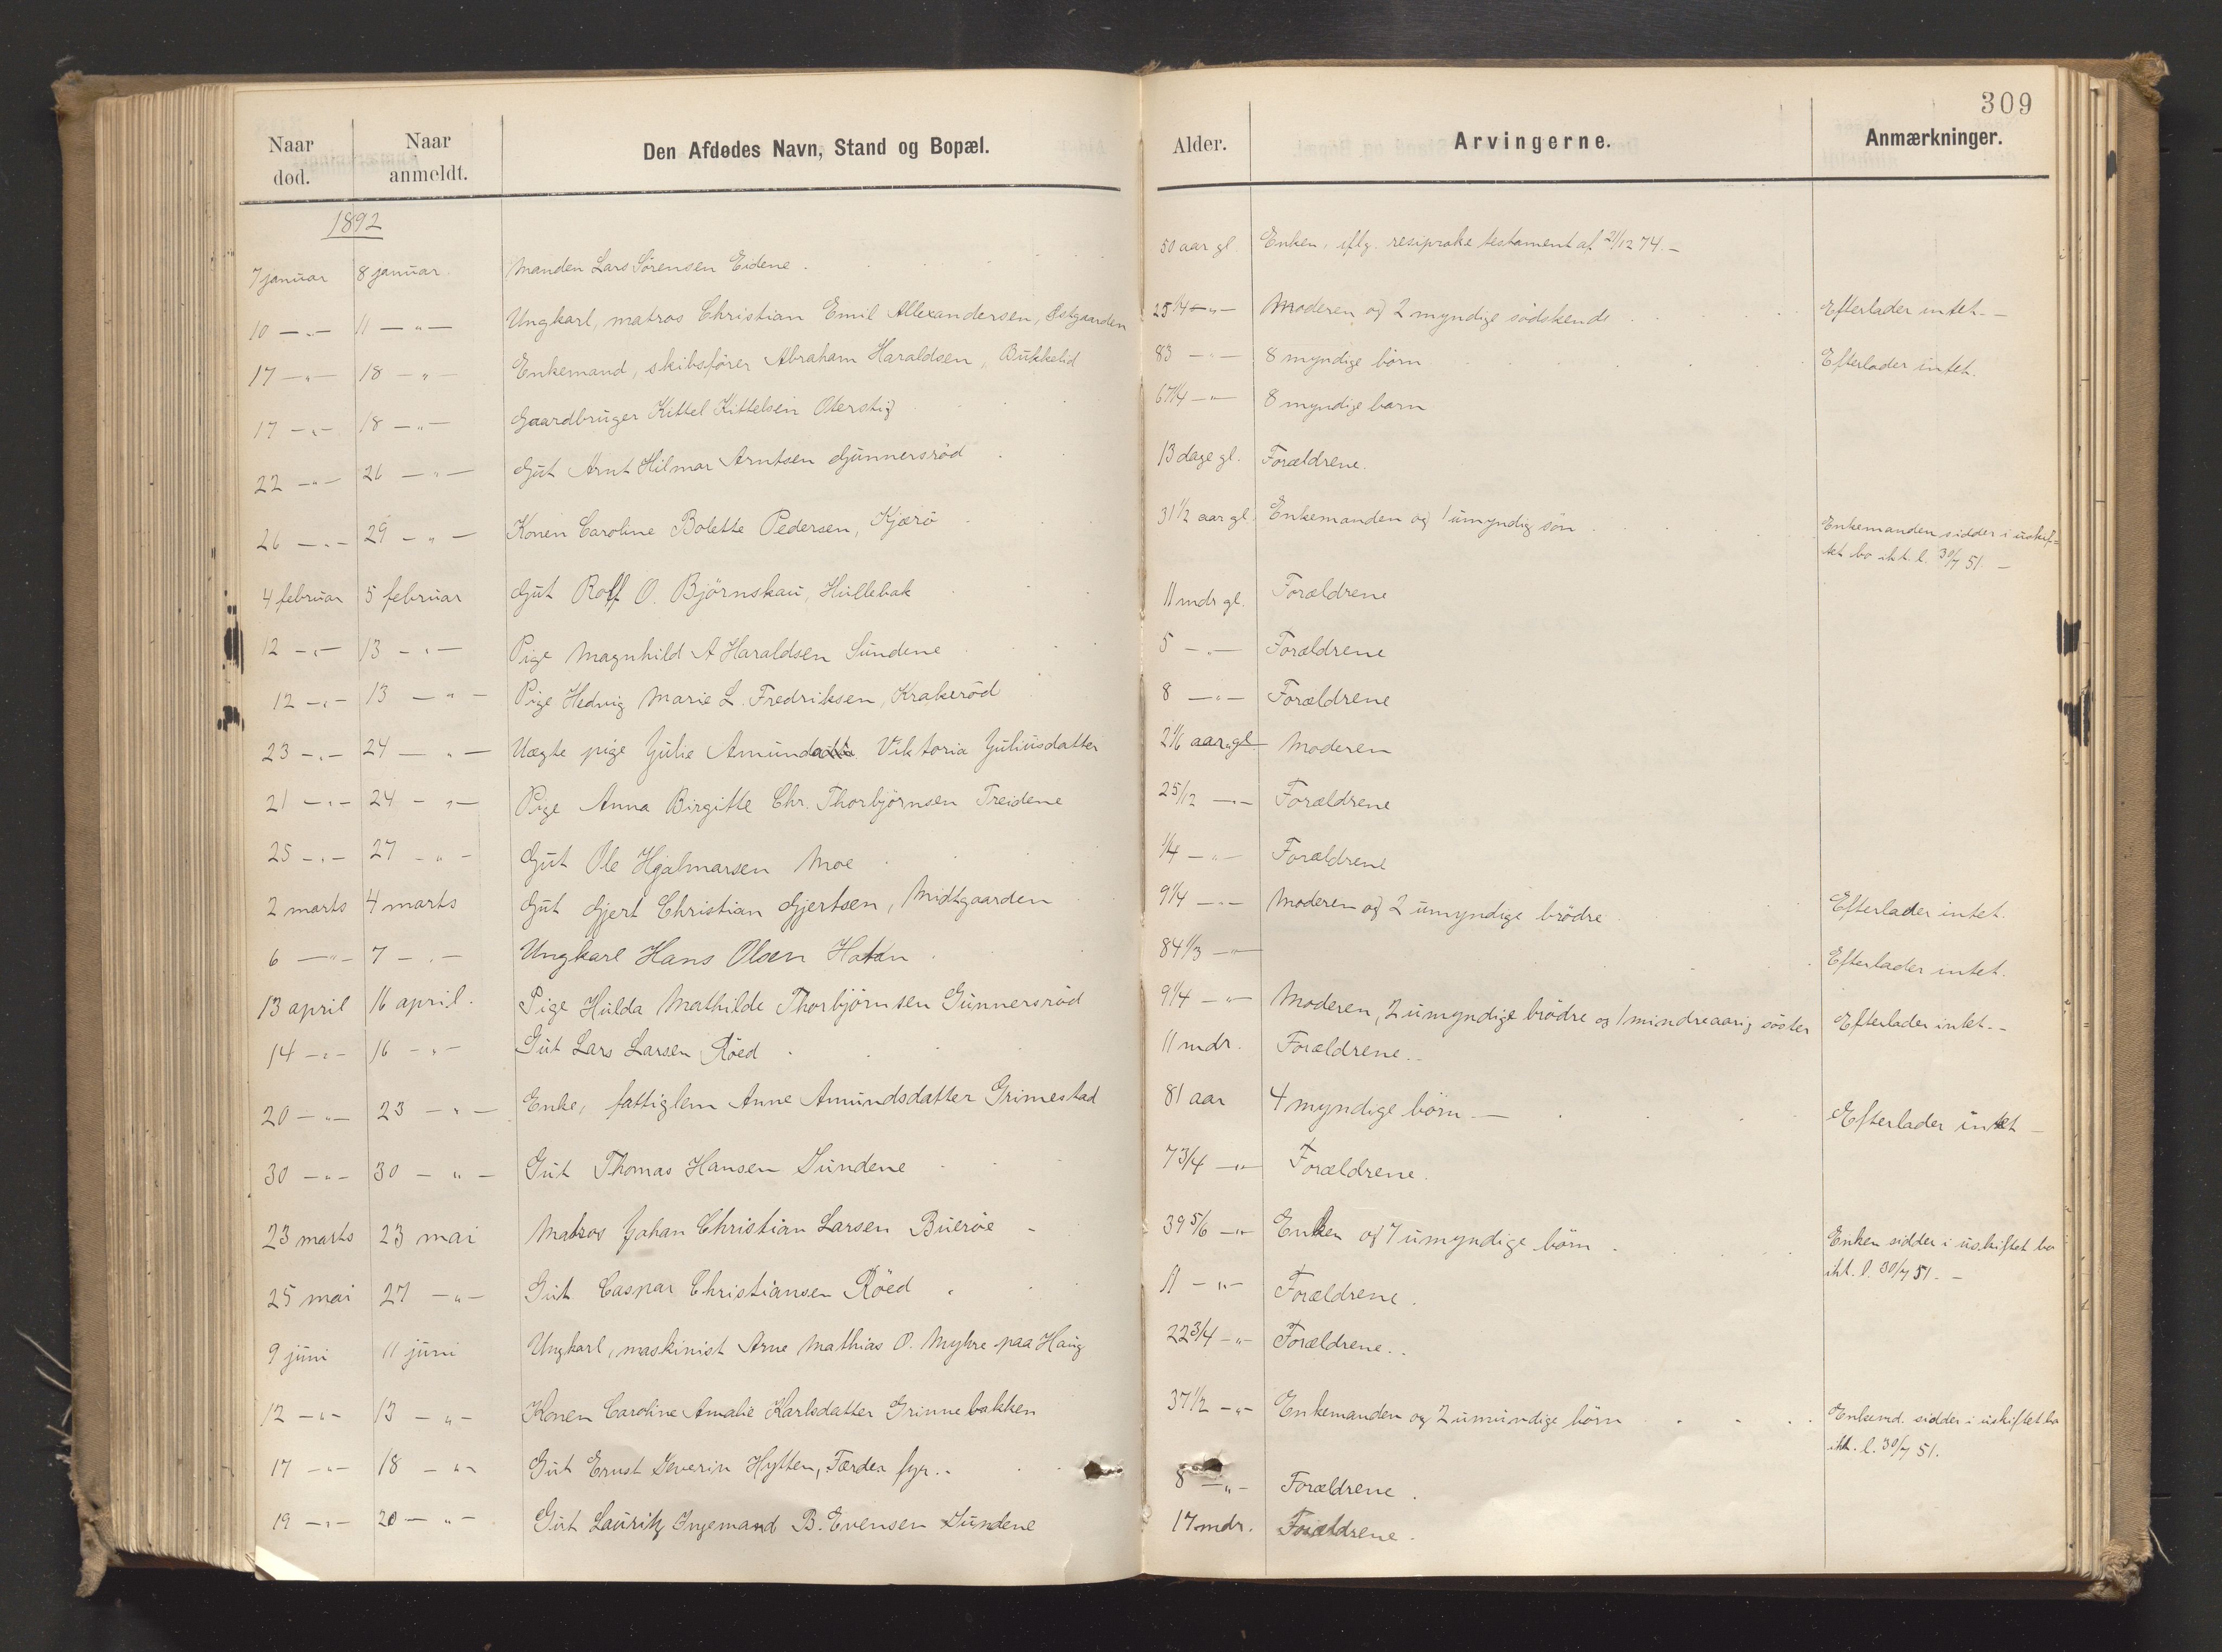 309
Naar død. | Naar anmeldt. | Den Afdødes Navn, Stand og Bopæl. | Alder. | Arvingerne. | Anmærkninger.
1892
7 januar | 8 januar. | Manden Lars Sørensen Eidene. | 50 aar gl. | Enken, iflg. resiproke testament af 21/12 74. –
10 –„– | 11 –„– | Ungkarl, matros Christian Emil Allexandersen, Østgaarden | 25 1/4 –„– | Moderen og 2 myndige södskende | Efterlader intet. –
17 –„– | 18 –„– | Enkemand, skibsfører Abraham Haraldsen, Bukkelid | 83 –„– | 8 myndige börn | Efterlader intet.
17 –„– | 18 –„– | Gaardbruger Kittel Kittelsen Oterstig | 67 1/4 –„– | 8 myndige barn
22 –„– | 26 –„– | Gut Arnt Hilmar Arntsen Gunnersröd | 13 dage gl. | Forældrene.
26 –„– | 29 –„– | Konen Caroline Bolette Pedersen, Kjærö | 31 1/2 aar gl. | Enkemanden og 1 umyndig sön | Enkemanden sidder i uskif=
tet bo iht. l. 30/7 51. –
4 februar | 5 februar | Gut Rolf O. Björnskau, Hullebak | 11 mdr gl. | Forældrene
12 –„– | 13 –„– | Pige Magnhild A Haraldsen Sundene | 5 –„– | Forældrene
12 –„– | 13 –„– | Pige Hedvig Marie L. Fredriksen, Krakeröd | 8 –„– | Forældrene
23 –„– | 24 –„– | Uægte pige Julie Amundatta Viktoria Juliusdatter | 2 1/6 aar gl. | Moderen
21 –„– | 24 –„– | Pige Anna Birgitte Chr. Thorbjörnsen Treidene | 2 5/12 –„– | Forældrene
25 –„– | 27 –„– | Gut Ole Hjalmarsen Moe | 1/4 –„– | Forældrene
2 marts | 4 marts | Gut Gjert Christian Gjertsen, Midtgaarden | 9 1/4 –„– | Moderen og 2 umyndige brödre | Efterlader intet.
6 –„– | 7 –„– | Ungkarl Hans Olsen | 84 1/3 –„– | Efterlader intet.
13 april | 16 april. | Pige Hulda Mathilde Thorbjörnsen Gunnersröd | 9 1/4 –„– | Moderen, 2 umyndige brödre og 1 mindreaarig söster | Efterlader intet. –
14 –„– | 16 –„– | Gut Lars Larsen Röed | 11 mdr. | Forældrene.
20 –„– | 23 –„– | Enke, fattiglem Anne Amundsdatter Grimestad | 81 aar | 4 myndige börn. – | Efterlader intet –
30 –„– | 30 –„– | Gut Thomas Hansen Sundene | 7 3/4 –„– | Forældrene.
23 marts | 23 mai | Matros Johan Christian Larsen Bueröe | 39 5/6 –„– | Enken og 7 umyndige börn. | Enken sidder i uskiftet bo
iht. l. 30/7 51. –
25 mai | 27 –„– | Gut Caspar Christiansen Röed | 11 –„– | Forældrene.
9 juni | 11 juni | Ungkarl, maskinist Arne Mathias O. Myhre paa Haug | 22 3/4 –„– | Forældrene..
12 –„– | 13 –„– | Konen Caroline Amalie Karlsdatter Grinnebakken | 37 1/2 –„– | Enkemanden og 2 umundige börn | Enkemd. sidder i uskiftet bo
iht. l. 30/7 51.
17 –„– | 18 –„– | Gut Ernst Severin Hytten, Færder fyr.. | 8 –„– | Forældrene.
19 –„– | 20 –„– | Gut Lauritz Ingemand B. Evensen Sundene | 17 mdr. | Forældrene.